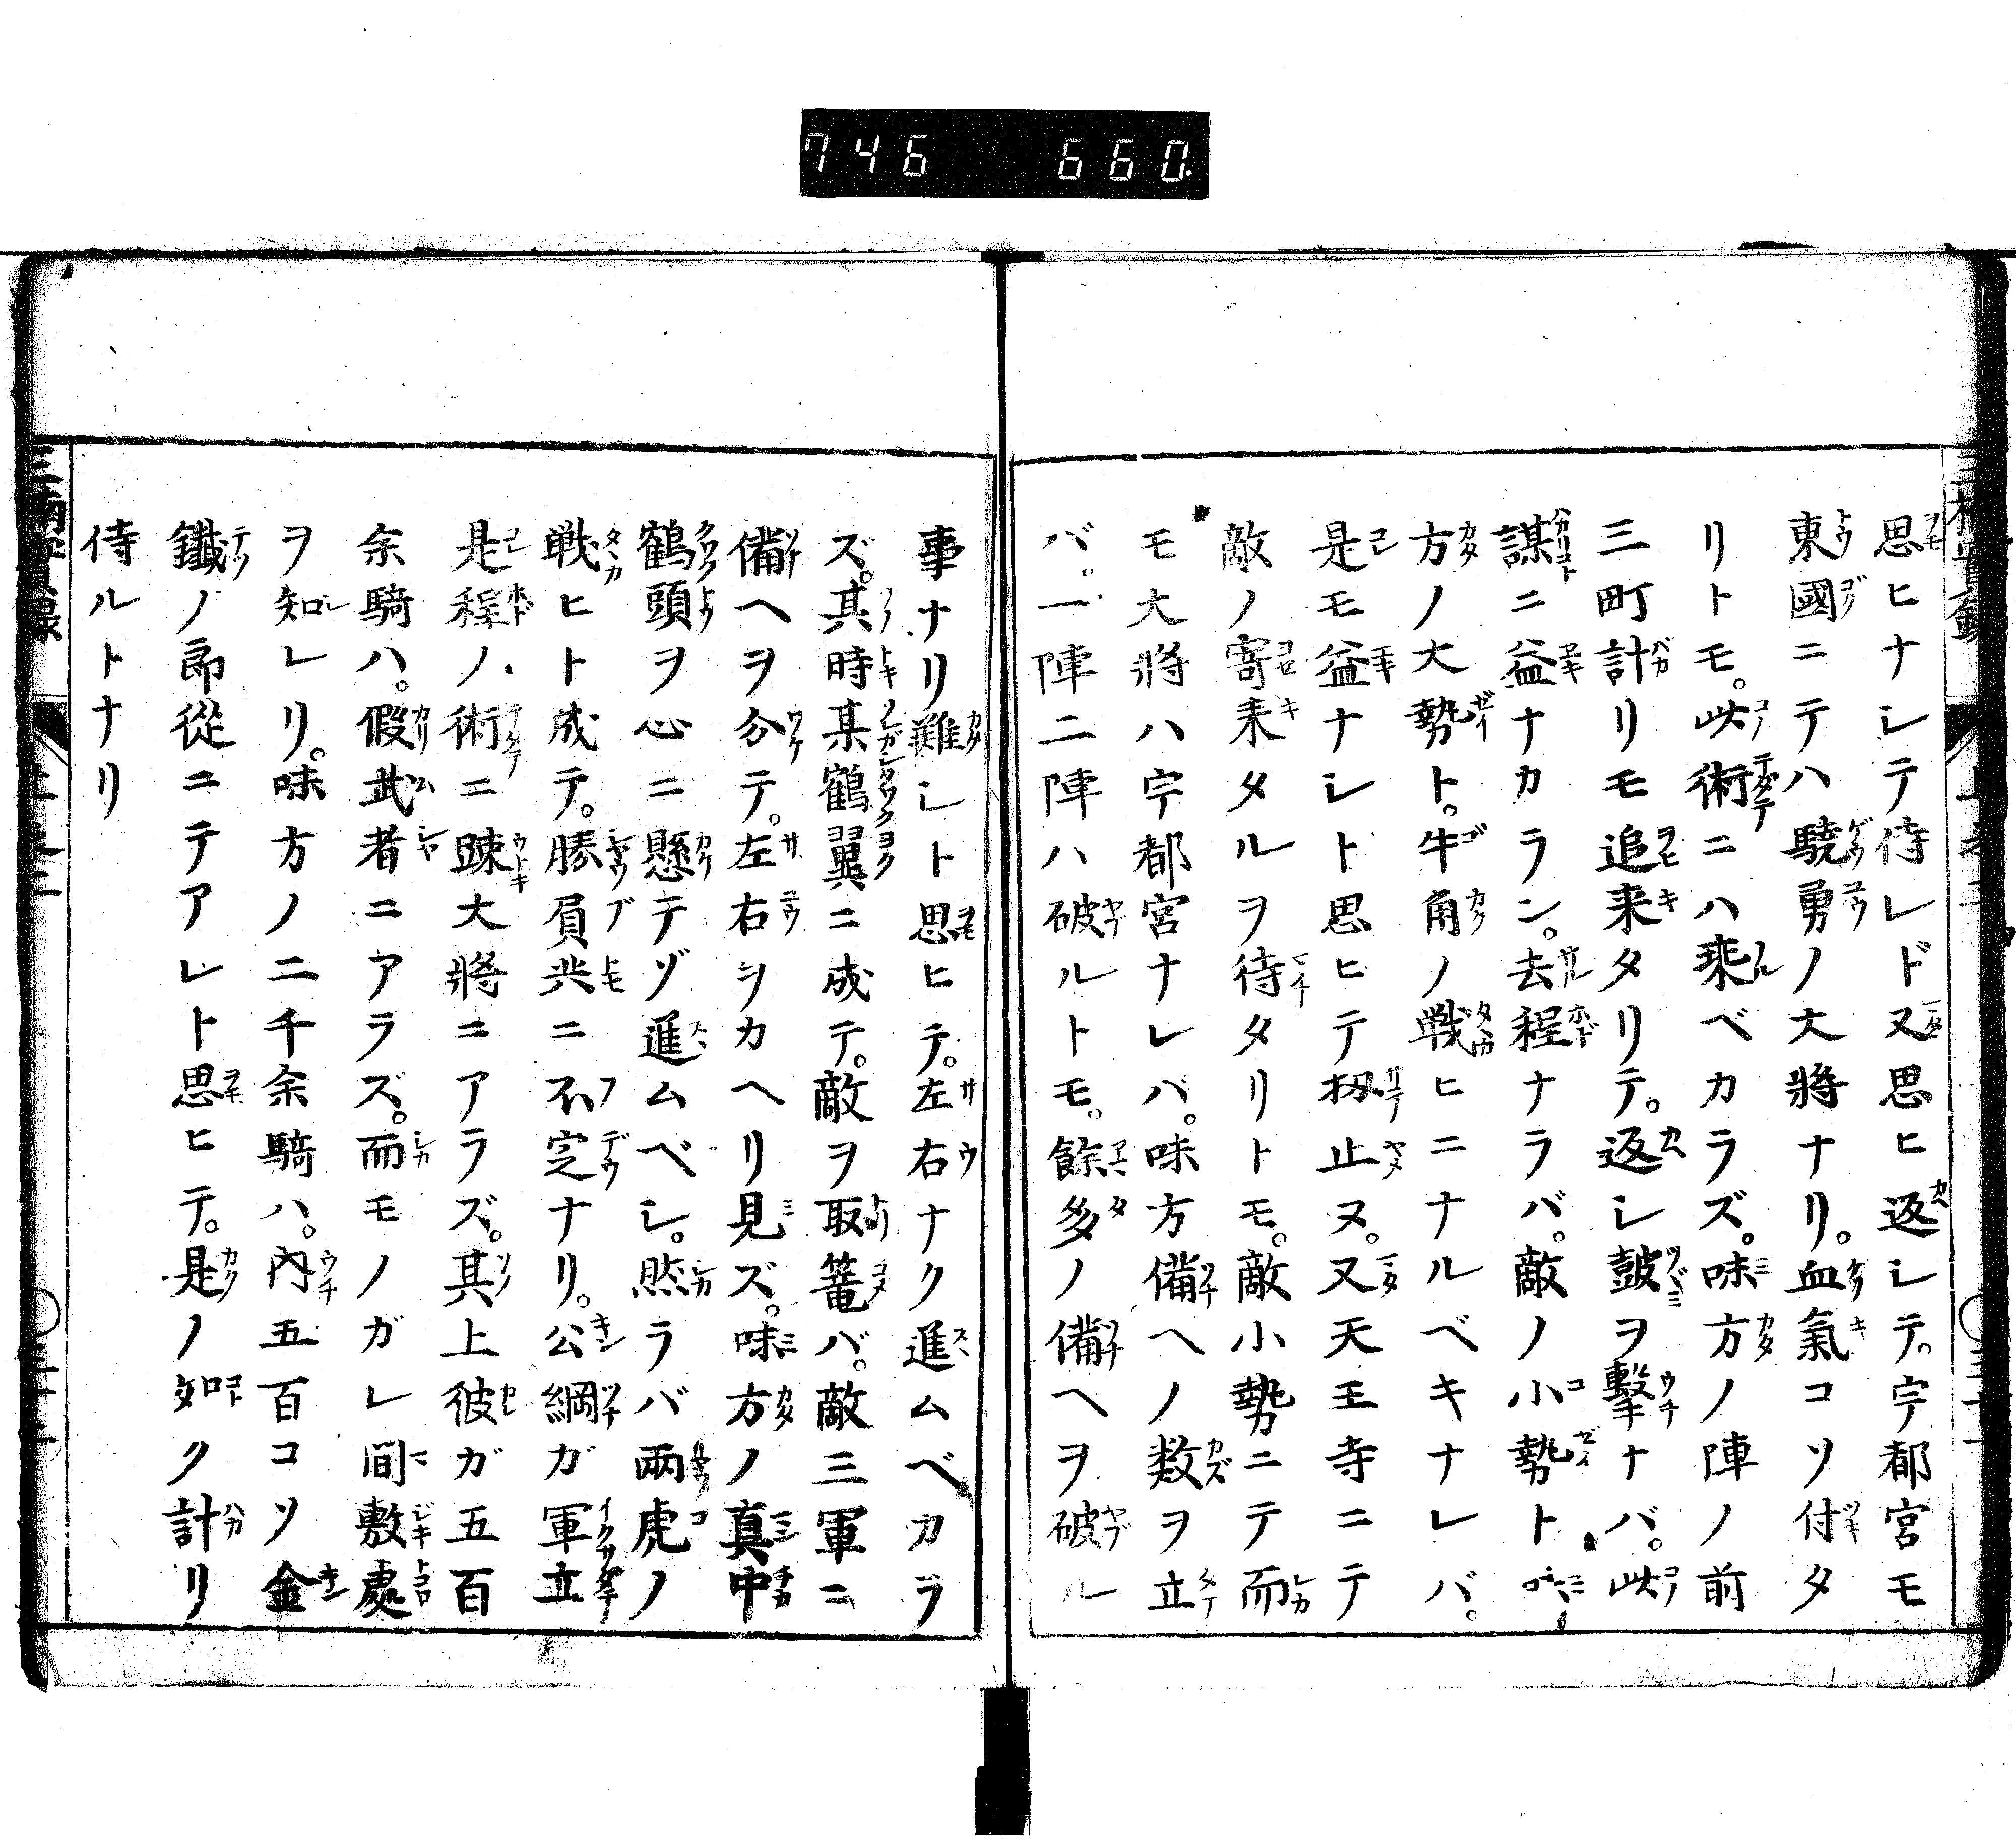 746 660.
思ヒナシテ侍レド又思ヒ返シテ。宇都宮モ
東國ニテハ驍勇ノ大將ナリ。血氣コソ付タ
リトモ。此術ニハ乗ベカラズ。味方ノ陣ノ前
三町計リモ追来タリテ。返シ鼓ヲ擊ナバ。此
謀ニ益ナカラン。去程ナラバ。敵ノ小勢ト
方ノ大勢ト。牛角ノ戦ヒニナルベキナレバ。
是モ益ナシト思ヒテ扨止ヌ。又天王寺ニテ
敵ノ寄来タルヲ待タリトモ。敵小勢ニテ而
モ大將ハ宇都宮ナレバ。味方備ヘノ数ヲ立
バ。一陣二陣ハ破ルトモ。餘多ノ備ヘヲ破ル
事ナリ難シト思ヒテ。左右ナク進ムベカラ
ズ。其時某鶴翼ニ成テ。敵ヲ取篭バ。敵三軍ニ
備ヘヲ分テ。左右ヲカヘリ見ズ。味方ノ真中
鶴頭ヲ心ニ懸テゾ進ムベシ。然ラバ兩虎ノ
戦ヒト成テ。勝負共ニ不定ナリ。公綱ガ軍立
是程ノ術ニ踈大將ニアラズ。其上彼ガ五百
余騎ハ。假武者ニアラズ。而モノガレ間敷處
ヲ知レリ。味方ノ二千余騎ハ。内五百コソ金
鐵ノ郎從ニテアレト思ヒテ。是ノ如ク計リ
侍ルトナリ